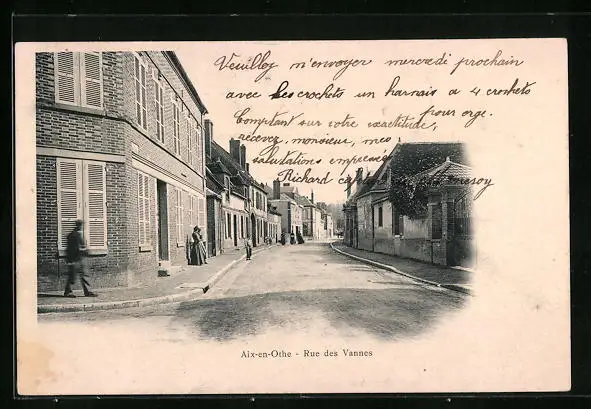 Veuillez m'envoyer mercredi prochain
avec les crochets un harnais a 4 crochets
pour orge.
Comptant sur votre exactitude,
recevez, monsieur, mes
salutations empressées
Richard
Aix-en-Othe - Rue des Vannes